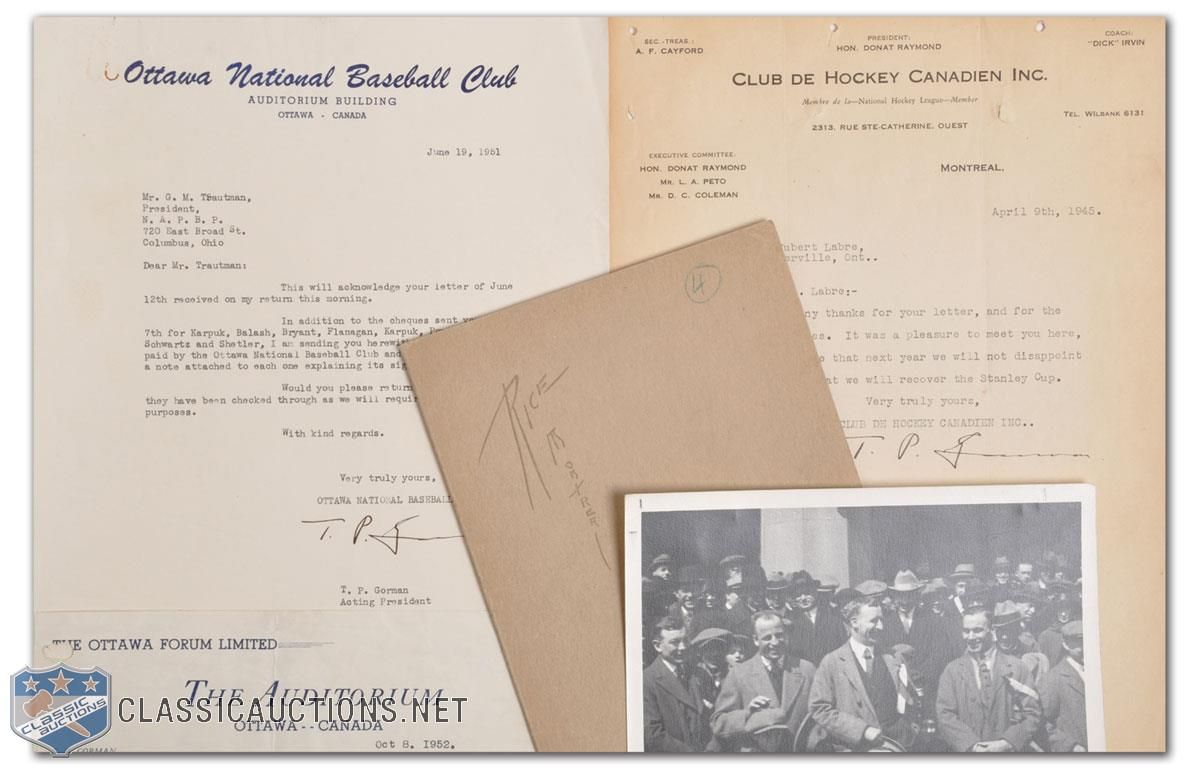 Ottawa National Baseball Club
AUDITORIUM BUILDING
OTTAWA - CANADA
June 19, 1951
Mr. G. M. Trautman,
President,
N. A. P. B. P.
720 East Broad St.
Columbus, Ohio
Dear Mr. Trautman:
This will acknowledge your letter of June
12th received on my return this morning.
In addition to the cheques sent
7th for Karpuk, Balash, Bryant, Flanagan, Karpuk,
Schwartz and Shetler, I am sending you herewi
paid by the Ottawa National Baseball Club and
a note attached to each one explaining its sig
Would you please return
they have been checked through as we will requi
purposes.
With kind regards.
Very truly yours,
OTTAWA NATIONAL BASEBALL
T. P. Gorman
T. P. Gorman
Acting President
THE OTTAWA FORUM LIMITED
THE AUDITORIUM
OTTAWA - - CANADA
Oct 8. 1952.
GORMAN
SEC.-TREAS.:
A. F. CAYFORD
PRESIDENT:
HON. DONAT RAYMOND
COACH:
"DICK" IRVIN
CLUB DE HOCKEY CANADIEN INC.
Membre de la—National Hockey League—Member
2313, RUE STE-CATHERINE, OUEST
TEL. WILBANK 6131
EXECUTIVE COMMITTEE:
HON. DONAT RAYMOND
MR. L. A. PETO
MR. D. C. COLEMAN
MONTREAL,
April 9th, 1945.
ubert Labre,
erville, Ont..
. Labre:-
ny thanks for your letter, and for the
es. It was a pleasure to meet you here,
e that next year we will not disappoint
at we will recover the Stanley Cup.
Very truly yours,
CLUB DE HOCKEY CANADIEN INC..
T. P. Gorman
4
RICE
CLASSIC
AUCTIONS
CLASSICAUCTIONS.NET